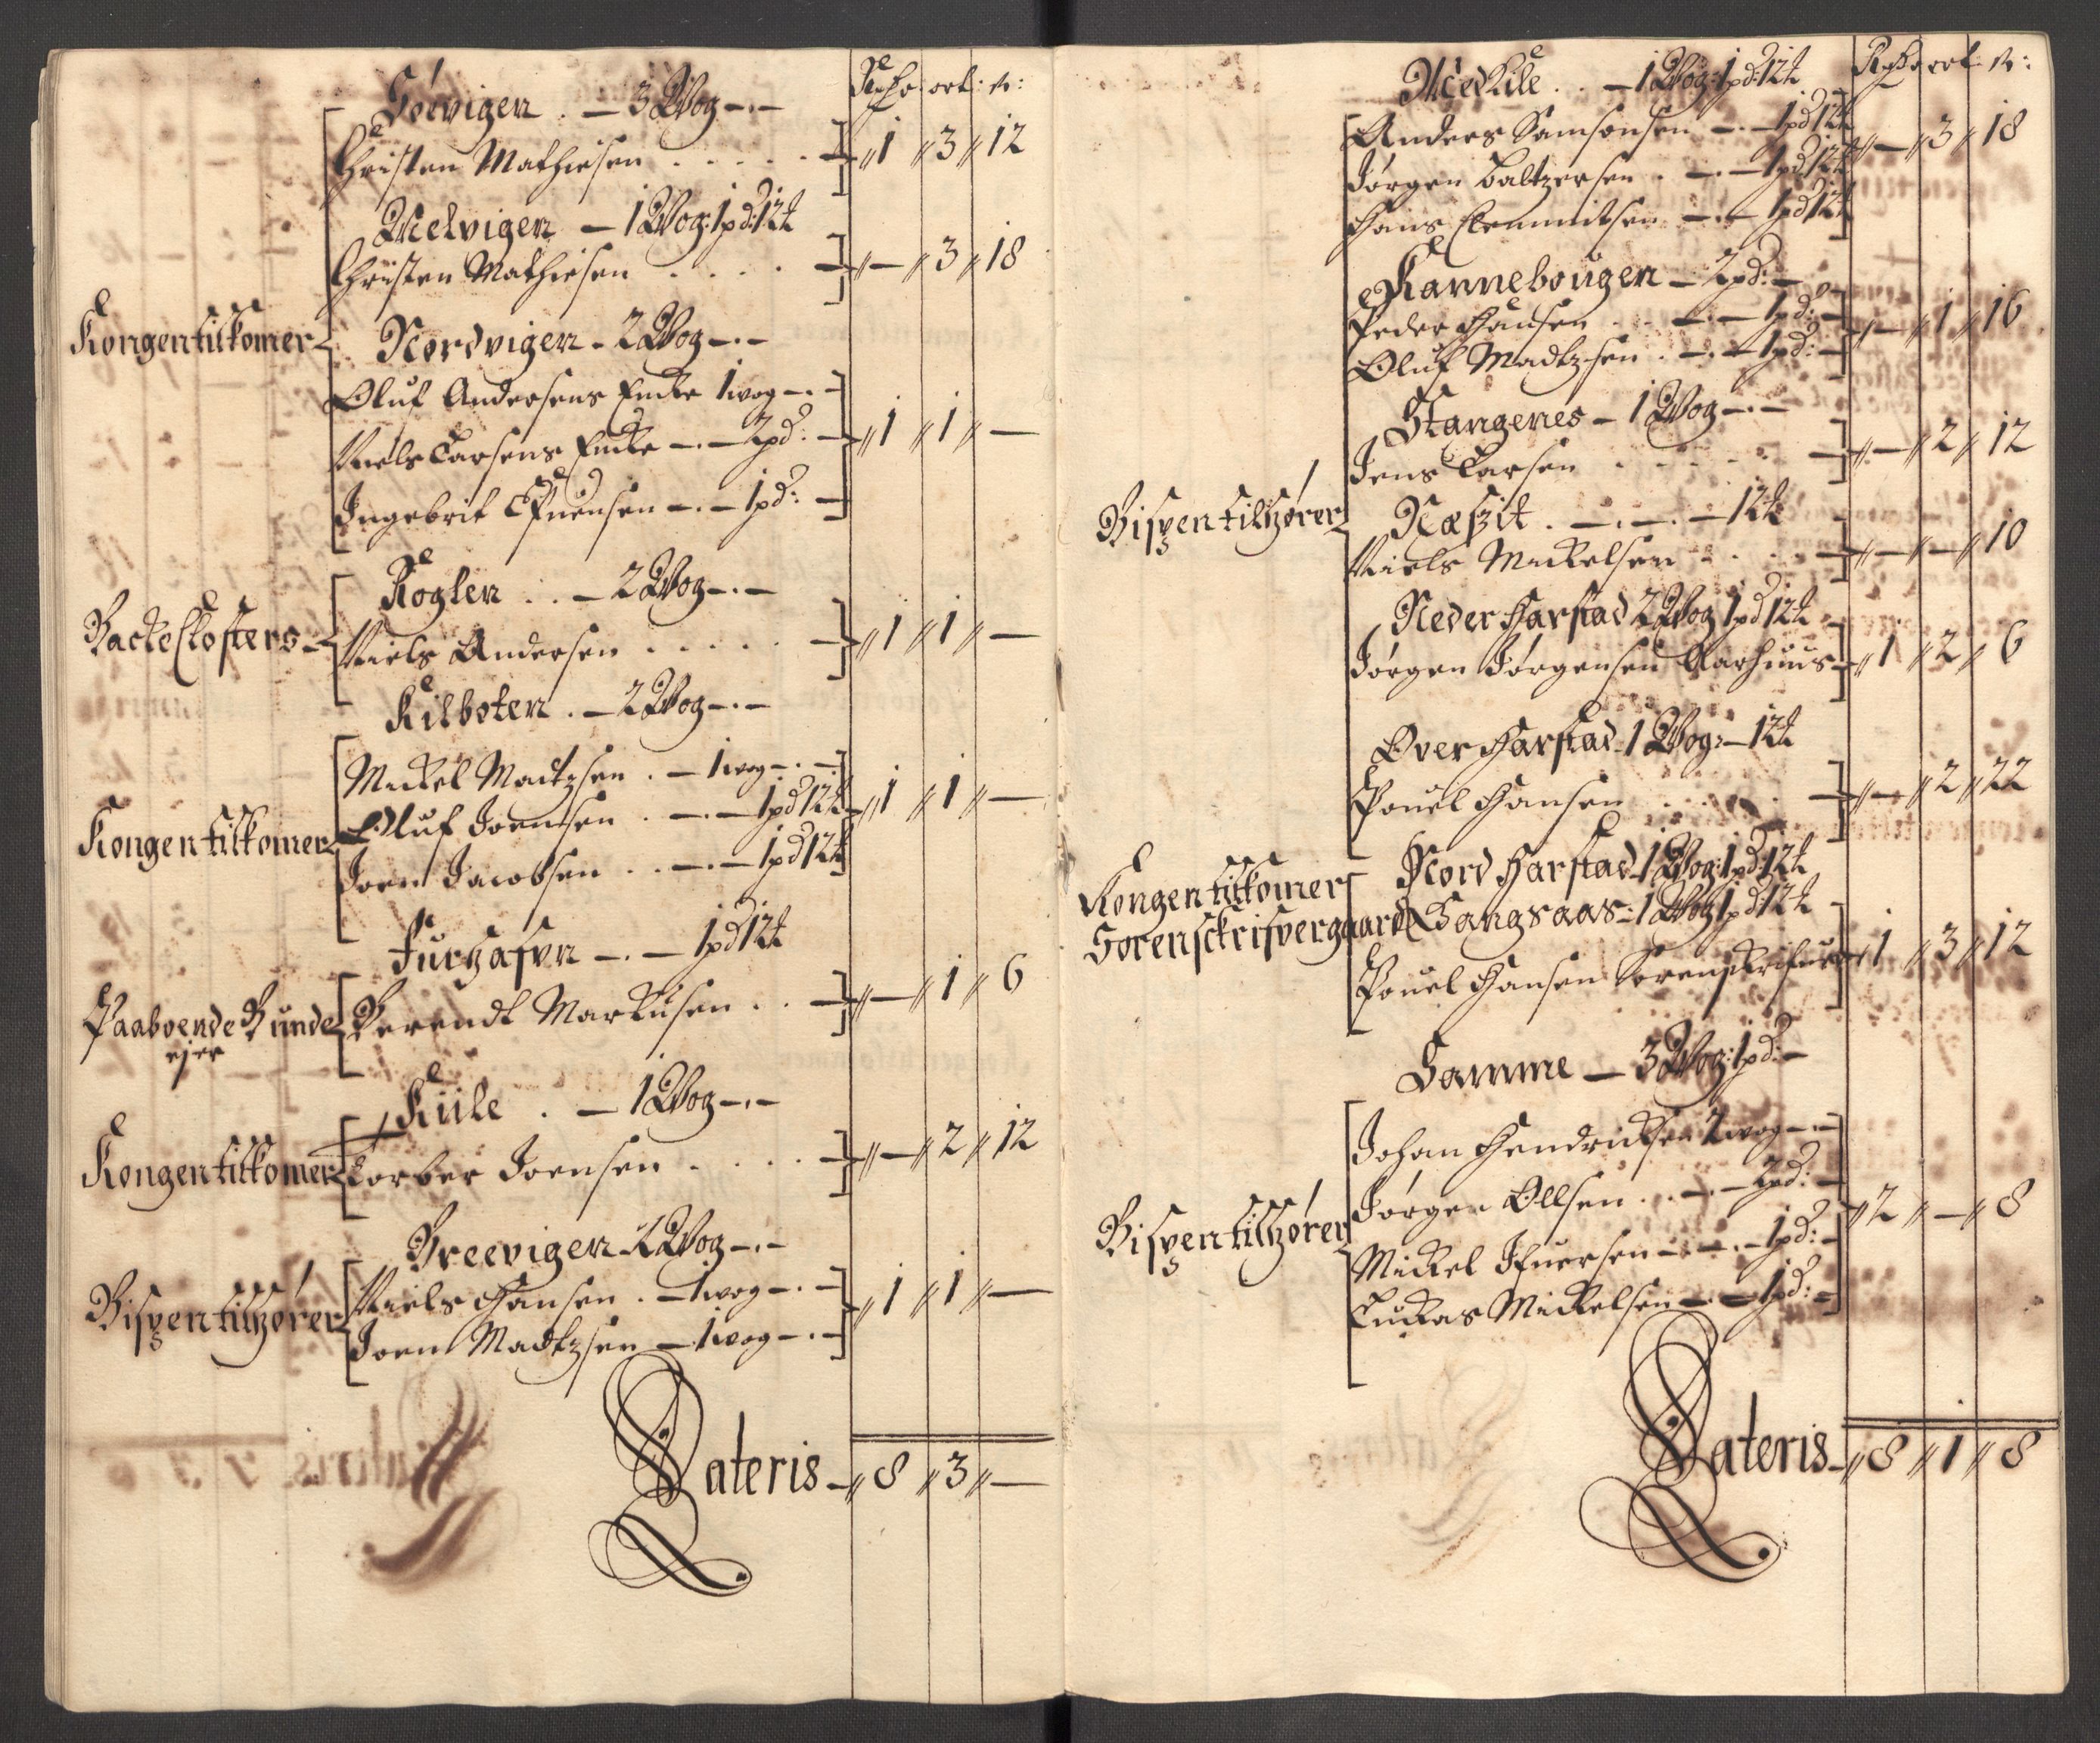 Rdr: ort: s:
Søevigen . — 3 Wog -.-
Christen Mathiesen . . . . . — 1 3 12
Melvigen — 1 Wog: 1 pd: 12 ℔
Christen Mathiesen . . . . — - 3 18
Kongen tilkomer
Nordvigen - 2 Wog -.-
Oluf Andersens Encke 1 wog -.-
Niels Larsens Encke -.- 2 pd: — 1 1 -
Ingebrit Efuensen -.- 1 pd: —
Rogler . . - 2 Wog -.-
Backe Closters
Niels Andersen . . . . . — 1 1 -
Kilboter . - 2 Wog -.-
Mickel Madtzsen . - 1 wog -.-
Oluf Joensen . -.- 1 pd 12 ℔ 1 1 -
Kongen tilkomer
Joen Jacobsen . . -.- 1 pd 12 ℔
-.- 1 pd 12 ℔
Paaboende Bunde
ejer
Berendt Markusen . . — - 1 6
Kiile . - 1 Wog -.-
Kongen tilkomer
Torber Joensen . . . . — - 2 12
Breevigen 2 Wog -.-
Bispen tilhører
Niels Hansen . - 1 wog -.- 1 1 -
Joen Madtzsen - 1 wog -.-
Lateris - 8 3 -
Rdr ort: s:
Medkile . . - 1 Wog: 1 pd: 12 ℔
Anders Samsonsen -.- 1 pd 12 ℔ - 3 18
Jørgen Baltzersen . -.- 1 pd 12 ℔
Hans Clemmitsen -.- 1 pd 12 ℔
Kannebougen - 2 pd: -
Peder Hansen . . -.- 1 pd: - - 1 16
Oluf Madtzsen . -.- 1 pd: -
Stangenes - 1 Wog -.-
Jens Larsen . . . . . — - 2 12
Bispen tilhører
Næssit . -.-.- 12 ℔
Niels Mickelsen . . . — - - 10
Neder Harstad 2 Wog 1 pd 12 ℔
Jørgen Jørgensen Aarhuus - 1 2 6
Over Harstad - 1 Wog: - 12 ℔
Pouel Hansen . . . . . — - 2 22
Kongen tilkomer
Nord Harstad - 1 Wog: 1 pd: 12 ℔
Sorenskrifvergaard
Gangsaas - 1 Wog 1 pd: 12 ℔
Pouel Hansen Sorenskrifver 1 3 12
Samme - 3 Wog: 1 pd: -
Johan Hendricksen 2 wog -.-
Jørgen Ollsen . . -.- 2 pd: - 2 - 8
Bispen tilhører
Mickel Ifuersen -.-.- 1 pd: -
Luckas Mickelsen -.- 1 pd: -
Lateris - 8 1 8